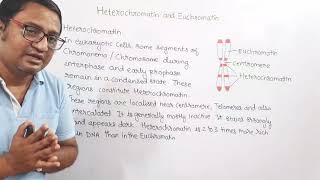 Heterochromatin and Euchromatin
Heterochromatin
In eukaryotic cells, some segments of
Chromonema / Chromosome during
interphase and early prophase
remain in a condensed state. These
regions constitute Heterochromatin.
These regions are localised near centromere, Telomeres and also
intercalated. It is generally mostly inactive. It stains strongly
and appears dark. Heterochromatin is 2 to 3 times more rich
in DNA than in the Euchromatin.
Euchromatin
centromere
Heterochromatin